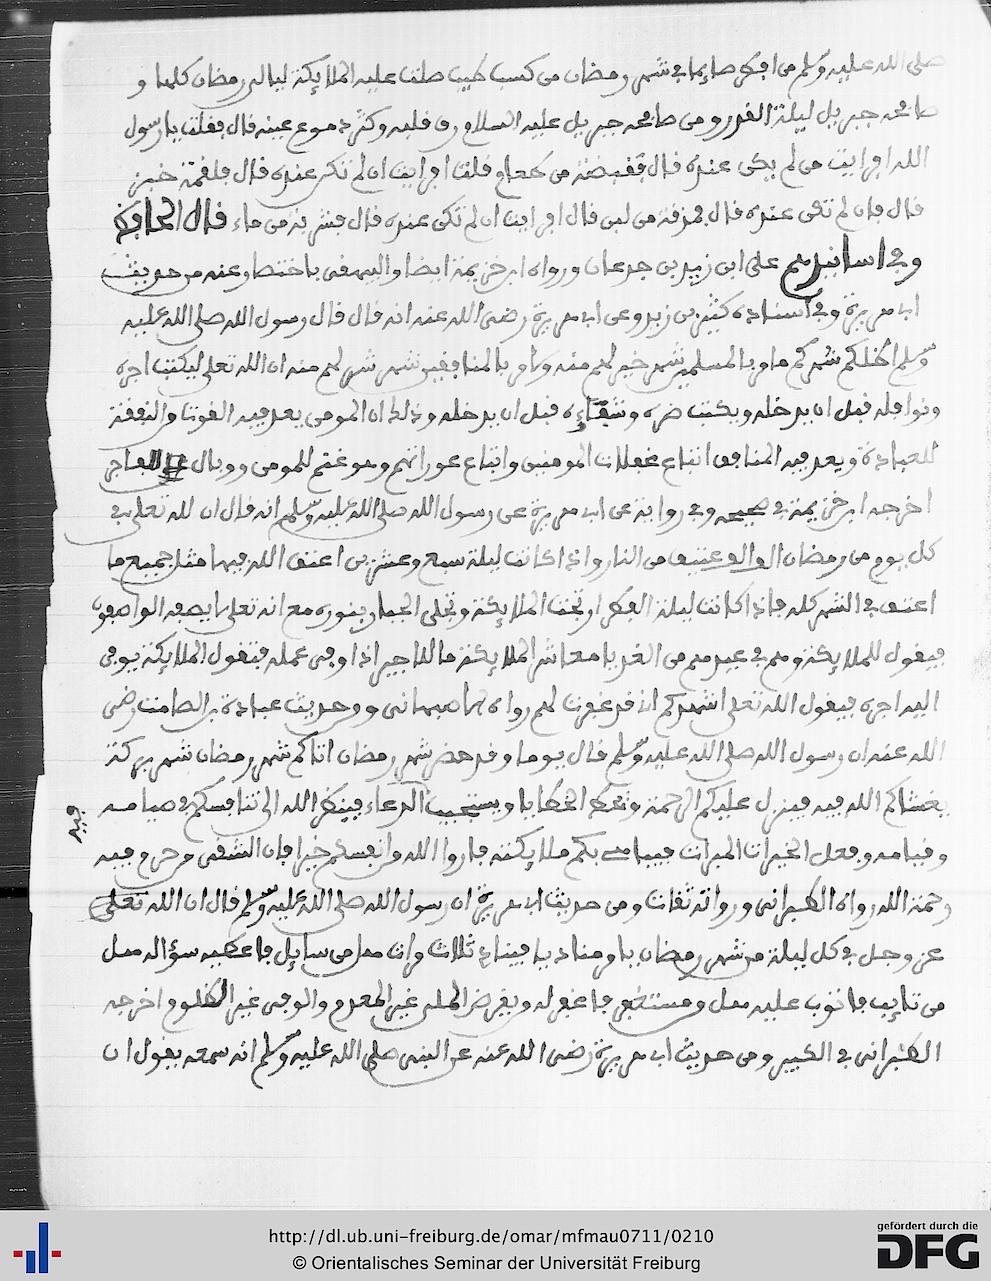 صلى الله عليه وسلم من افطر صايما في شهر رمضان من كسب طيب صلت عليه الملايكة ليالي رمضان كلها و
صافحه جبريل ليلة القدر ومن صافحه جبريل عليه السلام رق قلبه وكثر دموع عينه قال فقلت يا رسول
الله افرايت من لم يكن عنده قال فقبضة من طعام قلت افرايت ان لم تكن عنده قال فلقمة خبز
قال فان لم تكن عنده قال فمزقة من لبن قال افرايت ان لم تكن عنده قال فشربة من ماء قال الحافظ
وفي اسانيدهم علي ابن زيد بن جدعان ورواه ابن خزيمة ايضا والبيهقي باختصار وعنه من حديث
ابي هريرة وفي اسناده كثير بن زيد وعن ابي هريرة رضي الله عنه انه قال قال رسول الله صلى الله عليه
وسلم اظلكم شهركم هذا ما مر بالمسلمين شهر خير لهم منه ولا مر بالمنافقين شهر شر لهم منه ان الله تعلى ليكتب اجره
ونوافله قبل ان يدخله ويكتب ضره وشقاءه قبل ان يدخله وذلك ان المومن يعد فيه القوت والنفقة
للعبادة ويعد فيه المنافق اتباع غفلات المومنين واتباع عوراتهم وهو غنم للمومن ووبال الفاجر
اخرجه ابن خزيمة في صحيحه وفي رواية عن ابي هريرة عن رسول الله صلى الله عليه وسلم انه قال ان لله تعلى في
كل يوم من رمضان الف الف عتيق من النار واذا كانت ليلة سبع وعشرين اعتق الله فيها مثل جميع ما
اعتق في الشهر كله فاذا كانت ليلة الفطر ارتجت الملايكة وتجلى الجبار بنوره مع انه تعلى لا يصفه الواصفون
فيقول للملايكة وهم في عيدهم من الغد يا معاشر الملايكة ما للاجير اذا وفى عمله فتقول الملايكة يوفى
اليه اجره فيقول الله تعلى اشهدكم اني قد غفرت لهم رواه الاصبهاني ومن حديث عبادة بن الصامت رضي
الله عنه ان رسول الله صلى الله عليه وسلم قال يوما وقد حضر شهر رمضان اتاكم شهر رمضان شهر بركة
يغشاكم الله فيه فينزل عليكم الرحمة وتحط الخطايا ويستجيب الدعاء فينظر الله الى تنافسكم في صيامه
فيه
وقيامه وفعل الخيرات المبرات فيباهي بكم ملايكته فاروا الله من انفسكم خيرا فان الشقي من حرم فيه
رحمة الله رواه الطبراني ورواته ثقات ومن حديث ابي هريرة ان رسول الله صلى الله عليه وسلم قال ان الله تعلى
عز وجل في كل ليلة من شهر رمضان يامر مناديا فينادي ثلاث مرات هل من سايل فاعطيه سؤاله هل
من تايب فاتوب عليه هل من مستغفر فاغفر له ويقرض الملي غير المعدم والوفي غير الظلوم اخرجه
الطبراني في الكبير ومن حديث ابي هريرة رضي الله عنه عن النبي صلى الله عليه وسلم انه سمعه يقول ان
http://dl.ub.uni-freiburg.de/omar/mfmau0711/0210
© Orientalisches Seminar der Universität Freiburg
gefördert durch die
DFG